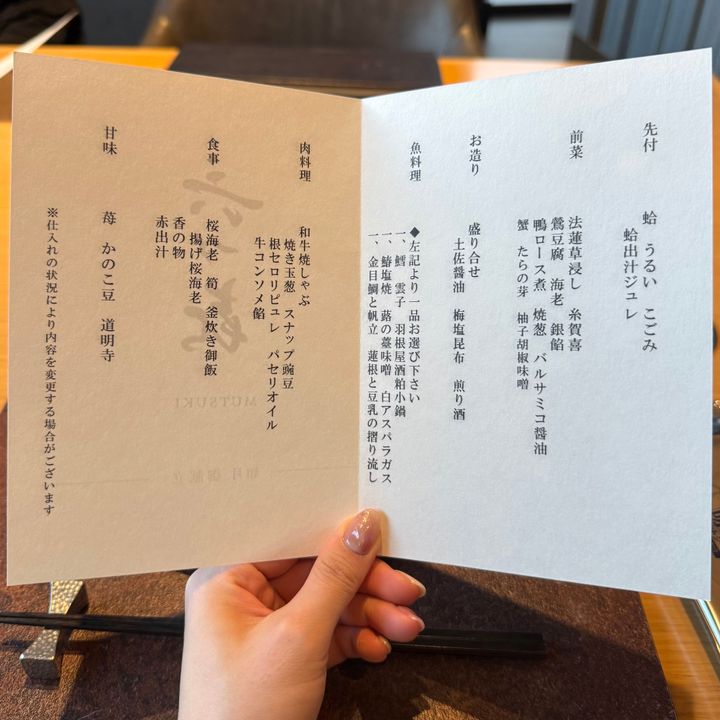 先付
蛤 うるい こごみ
蛤出汁ジュレ
前菜
法蓮草浸し 糸賀喜
鶯豆腐 海老 銀餡
鴨ロース煮 焼葱 バルサミコ醤油
蟹 たらの芽 柚子胡椒味噌
お造り
盛り合せ
土佐醤油 梅塩昆布 煎り酒
魚料理
◆左記より一品お選び下さい
一、鱈 雲子 羽根屋酒粕小鍋
一、鰆塩焼 蕗の薹味噌 白アスパラガス
一、金目鯛と帆立 蓮根と豆乳の摺り流し
肉料理
和牛焼しゃぶ
焼き玉葱 スナップ豌豆
根セロリピュレ パセリオイル
牛コンソメ餡
食事
桜海老 筍 釜炊き御飯
揚げ桜海老
香の物
赤出汁
甘味
苺 かのこ豆 道明寺
※仕入れの状況により内容を変更する場合がございます
MUTSUKI